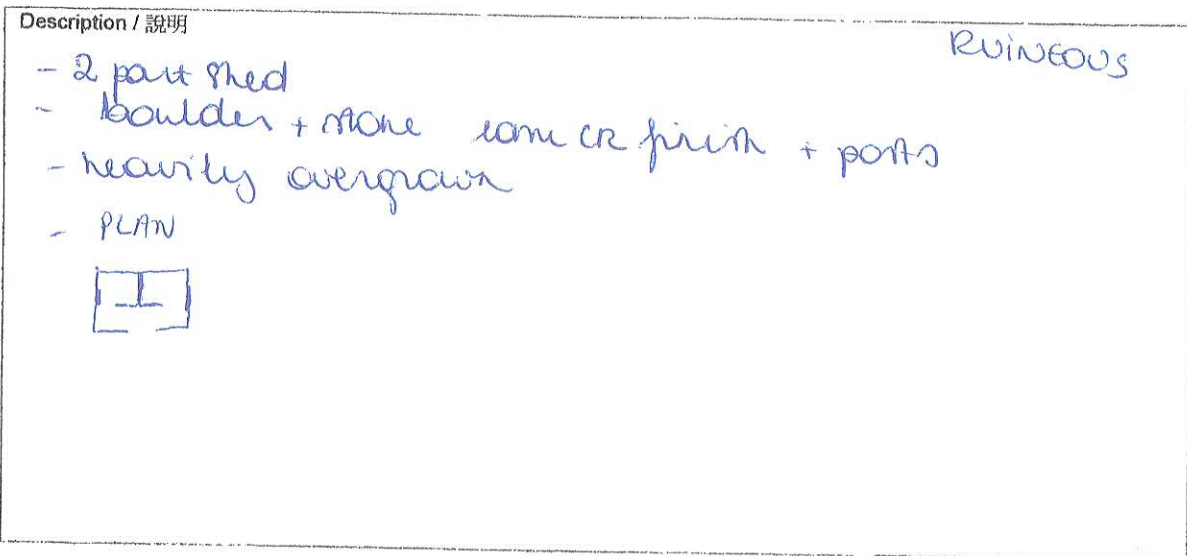 Description / 說明
RUINEOUS
- 2 part shed
- boulder + stone CR finish + posts
- heavily overgrown
- PLAN